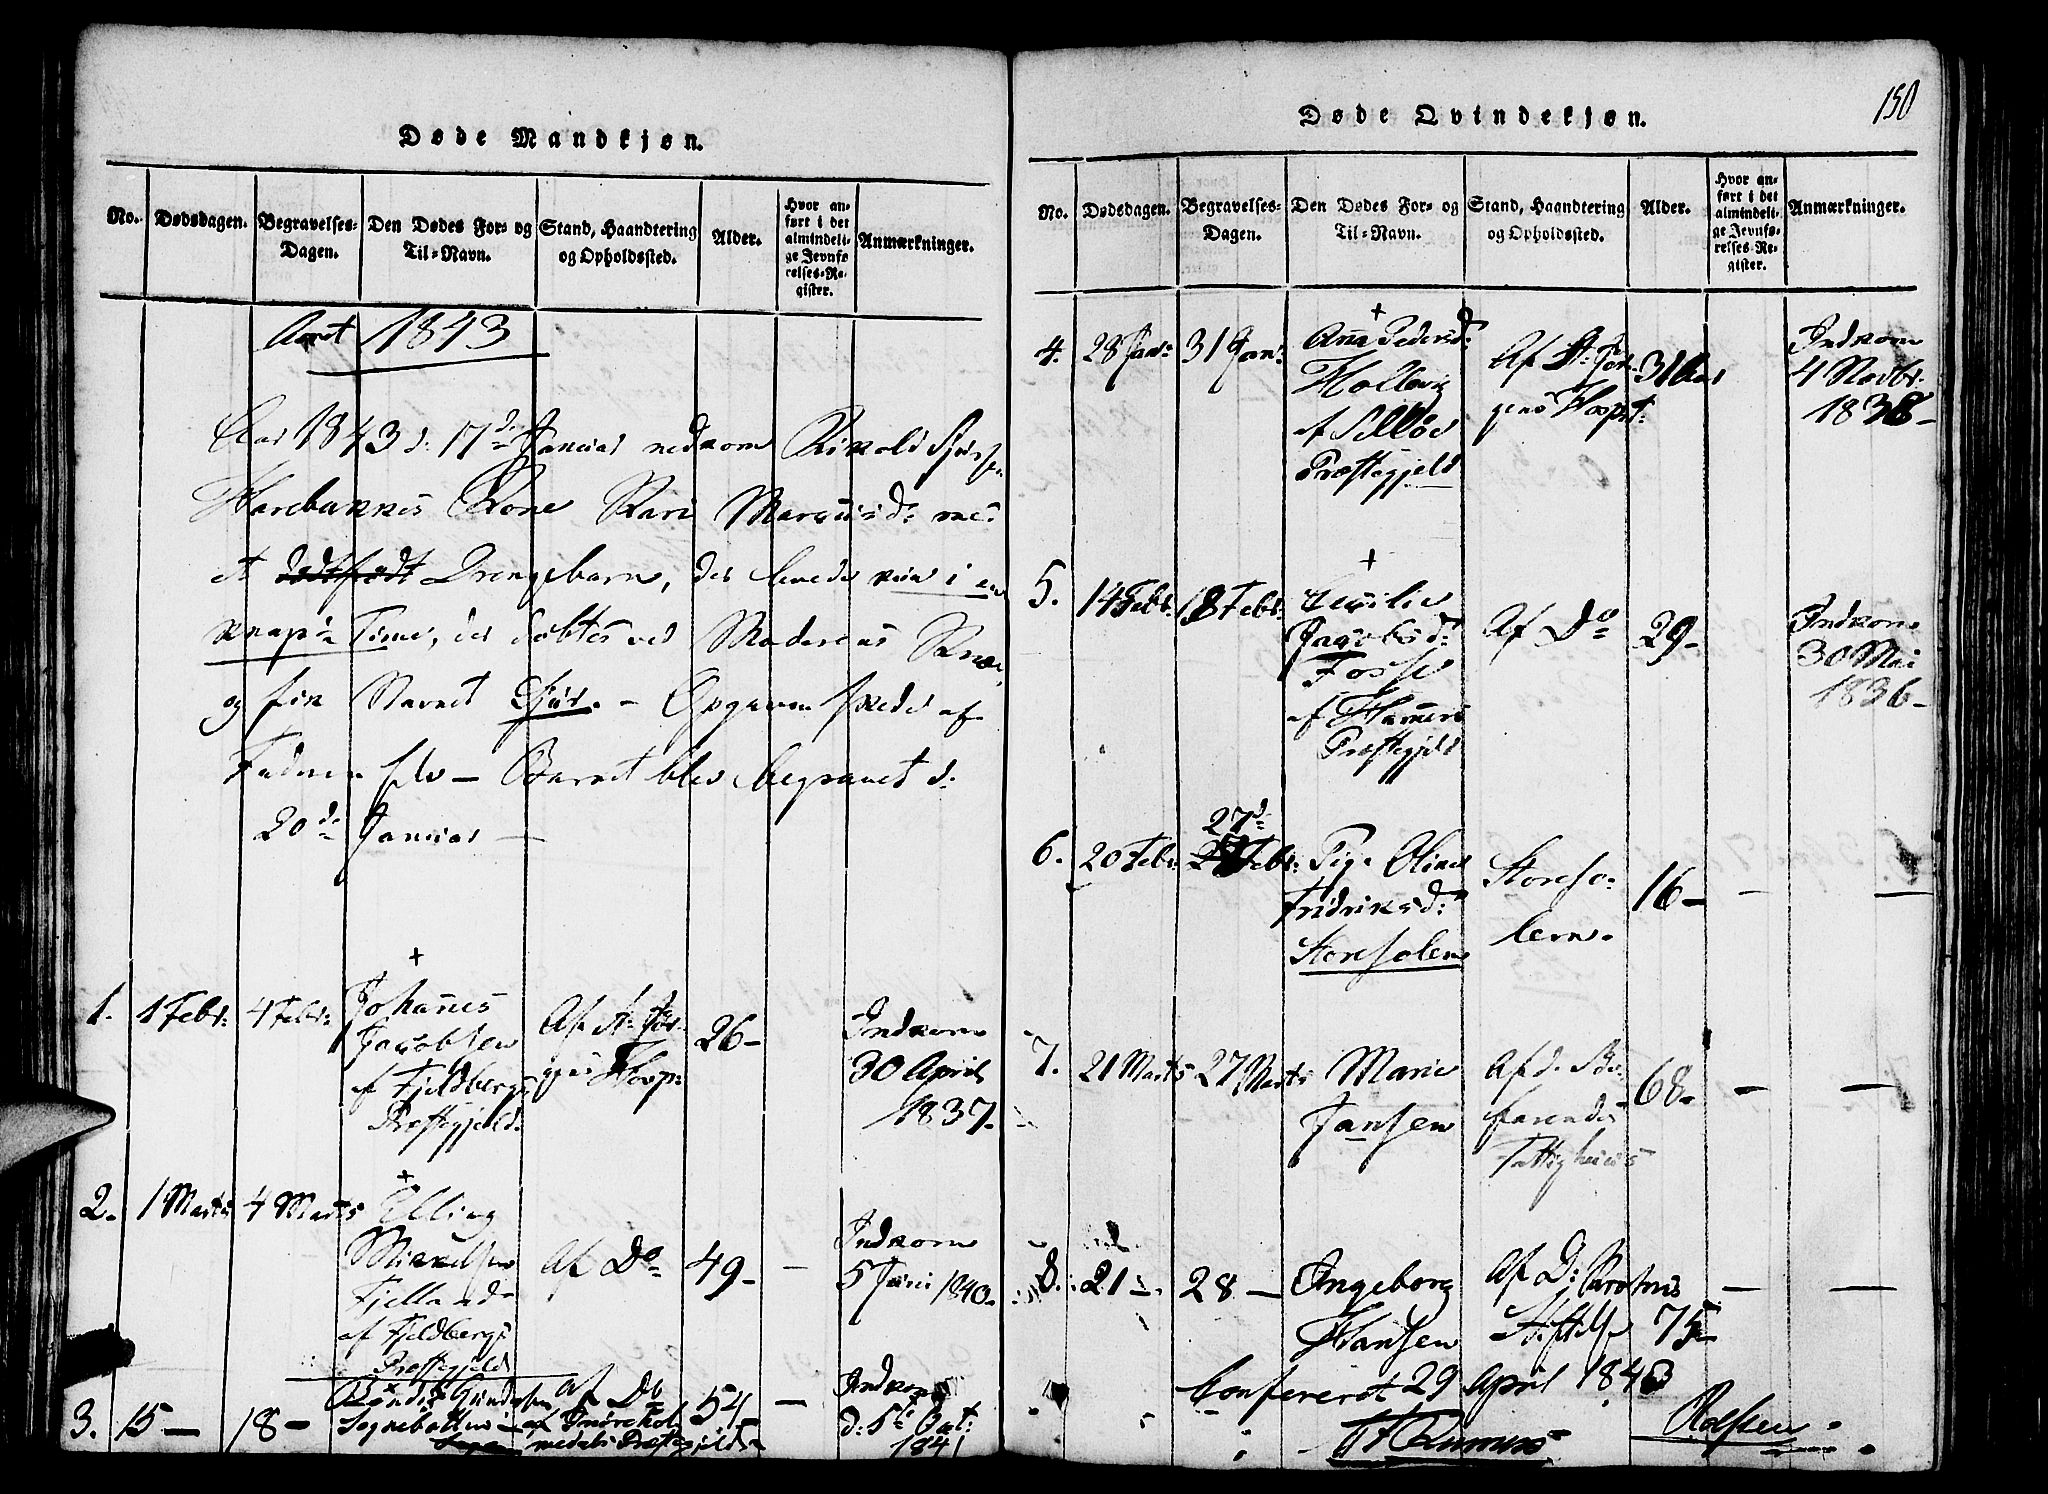 Døde Mandkjøn.
No.
Dødsdagen.
Begravelses-
Dagen.
Den Dødes For- og
Til-Navn.
Stand, Haandtering
og Opholdssted.
Alder.
Hvor an-
ført i det
almindeli-
ge Jevnfø-
relses-Re-
gister.
Anmærkninger.
Aaret 1843
Aar 1843 d: 17de Januar nedkom Rikold Sjurs
Kone Kari d:
et dødtfødt Drengebarn, der levede kun i en
knap Time, der døbtes ved Moderens
og fik Navnet Sjur. - Opgaven skede af
Faderen selv - Barnet blev begravet d:
20de Januar -
1. 1 Febr: 4 Febr: + Johanes
Jacobsen
af Fjeldbergs
Præstegjeld. Af St: Jør-
gens Hosp: 26- Indkom
30 April
1837-
2. 1 Marts 4 Marts + Elling
Mikkelsen
Fjelland
af Fjeldbergs
Præstegjeld Af Do 49- - Indkom
5 Juni 1840-
3. 15 - 18 -
Sognebotten af Do 54 - Indkom
d: 5te Oct:
1841
Døde Qvindekjøn.
150
No.
Dødsdagen.
Begravelses-
Dagen.
Den Dødes For- og
Til-Navn.
Stand, Haandtering
og Opholdssted.
Alder.
Hvor an-
ført i det
almindeli-
ge Jevnfø-
relses-Re-
gister.
Anmærkninger.
4. 28 Jan: 31 Jan: + Anna Pedersd:
af Selløe
Præstegjeld Af St: Jør-
gens Hospt: 31 Aar Indkom
4 Novbr:
1838-
5. 14 Febr: 18 Febr: + Cecilie
Jacobsd:
Fosse
af Hammers
Præstegjeld Af Do 29- Indkom
30 Mai
1836-
6. 20 Febr: 27de Febr: Pige Oline
Fridriksd:
Storesolen Storeso-
len. 16- - -
7. 21 Marts 27 Marts Marie
Jansen Af d. Sø-
farendes
Fattighuus 68- - -
8. 21 - 28 - Ingeborg
Hansen Af D:
Stiftelse 75 - -
Confereret 29 April 1843